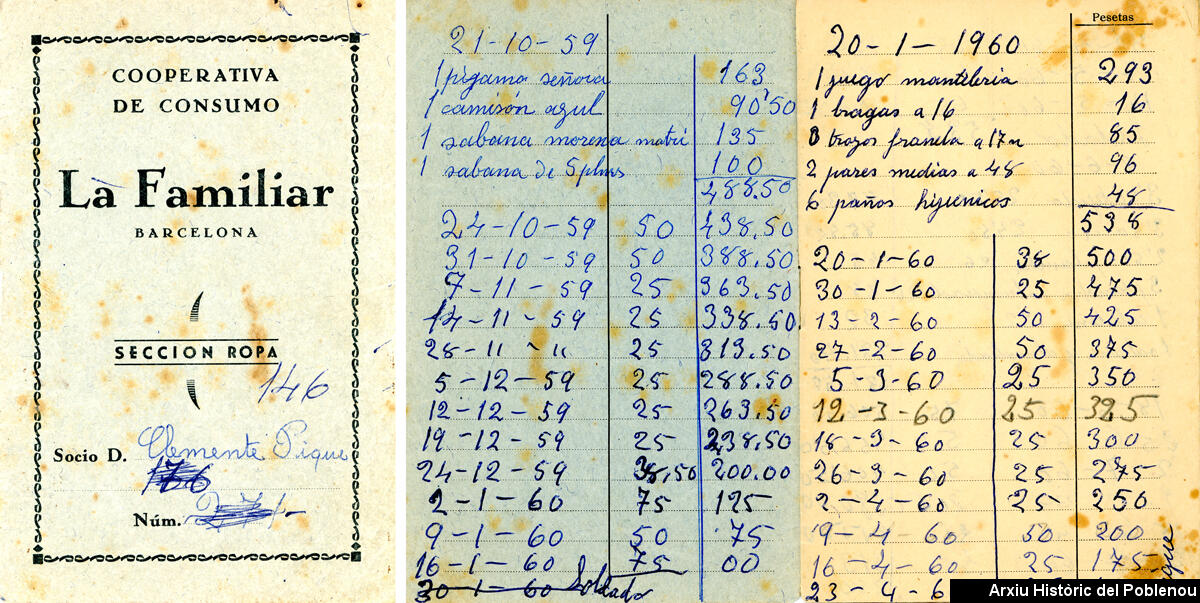 COOPERATIVA
DE CONSUMO
La Familiar
BARCELONA
SECCION ROPA
146
Socio D. Clemente Pique
176
Núm.
21-10-59
1 pigama señora 163
1 camisón azul 90'50
1 sabana morena matri 135
1 sabana de 5 plms 100
488.50
24-10-59 50 438.50
31-10-59 50 388.50
7-11-59 25 363.50
14-11-59 25 338.50
28-11-" 25 313.50
5-12-59 25 288.50
12-12-59 25 263.50
19-12-59 25 238.50
24-12-59 38,50 200.00
2-1-60 75 125
9-1-60 50 75
16-1-60 75 00
30-1-60 Soldado
Pesetas
20-1-1960
1 juego manteleria 293
1 bragas a 16 16
trozos franela a 17 85
2 pares medias a 48 96
6 paños higienicos 48
538
20-1-60 38 500
30-1-60 25 475
13-2-60 50 425
27-2-60 50 375
5-3-60 25 350
12-3-60 25 325
18-3-60 25 300
26-3-60 25 275
2-4-60 25 250
9-4-60 50 200
16-4-60 25 175
23-4-6
Arxiu Històric del Poblenou